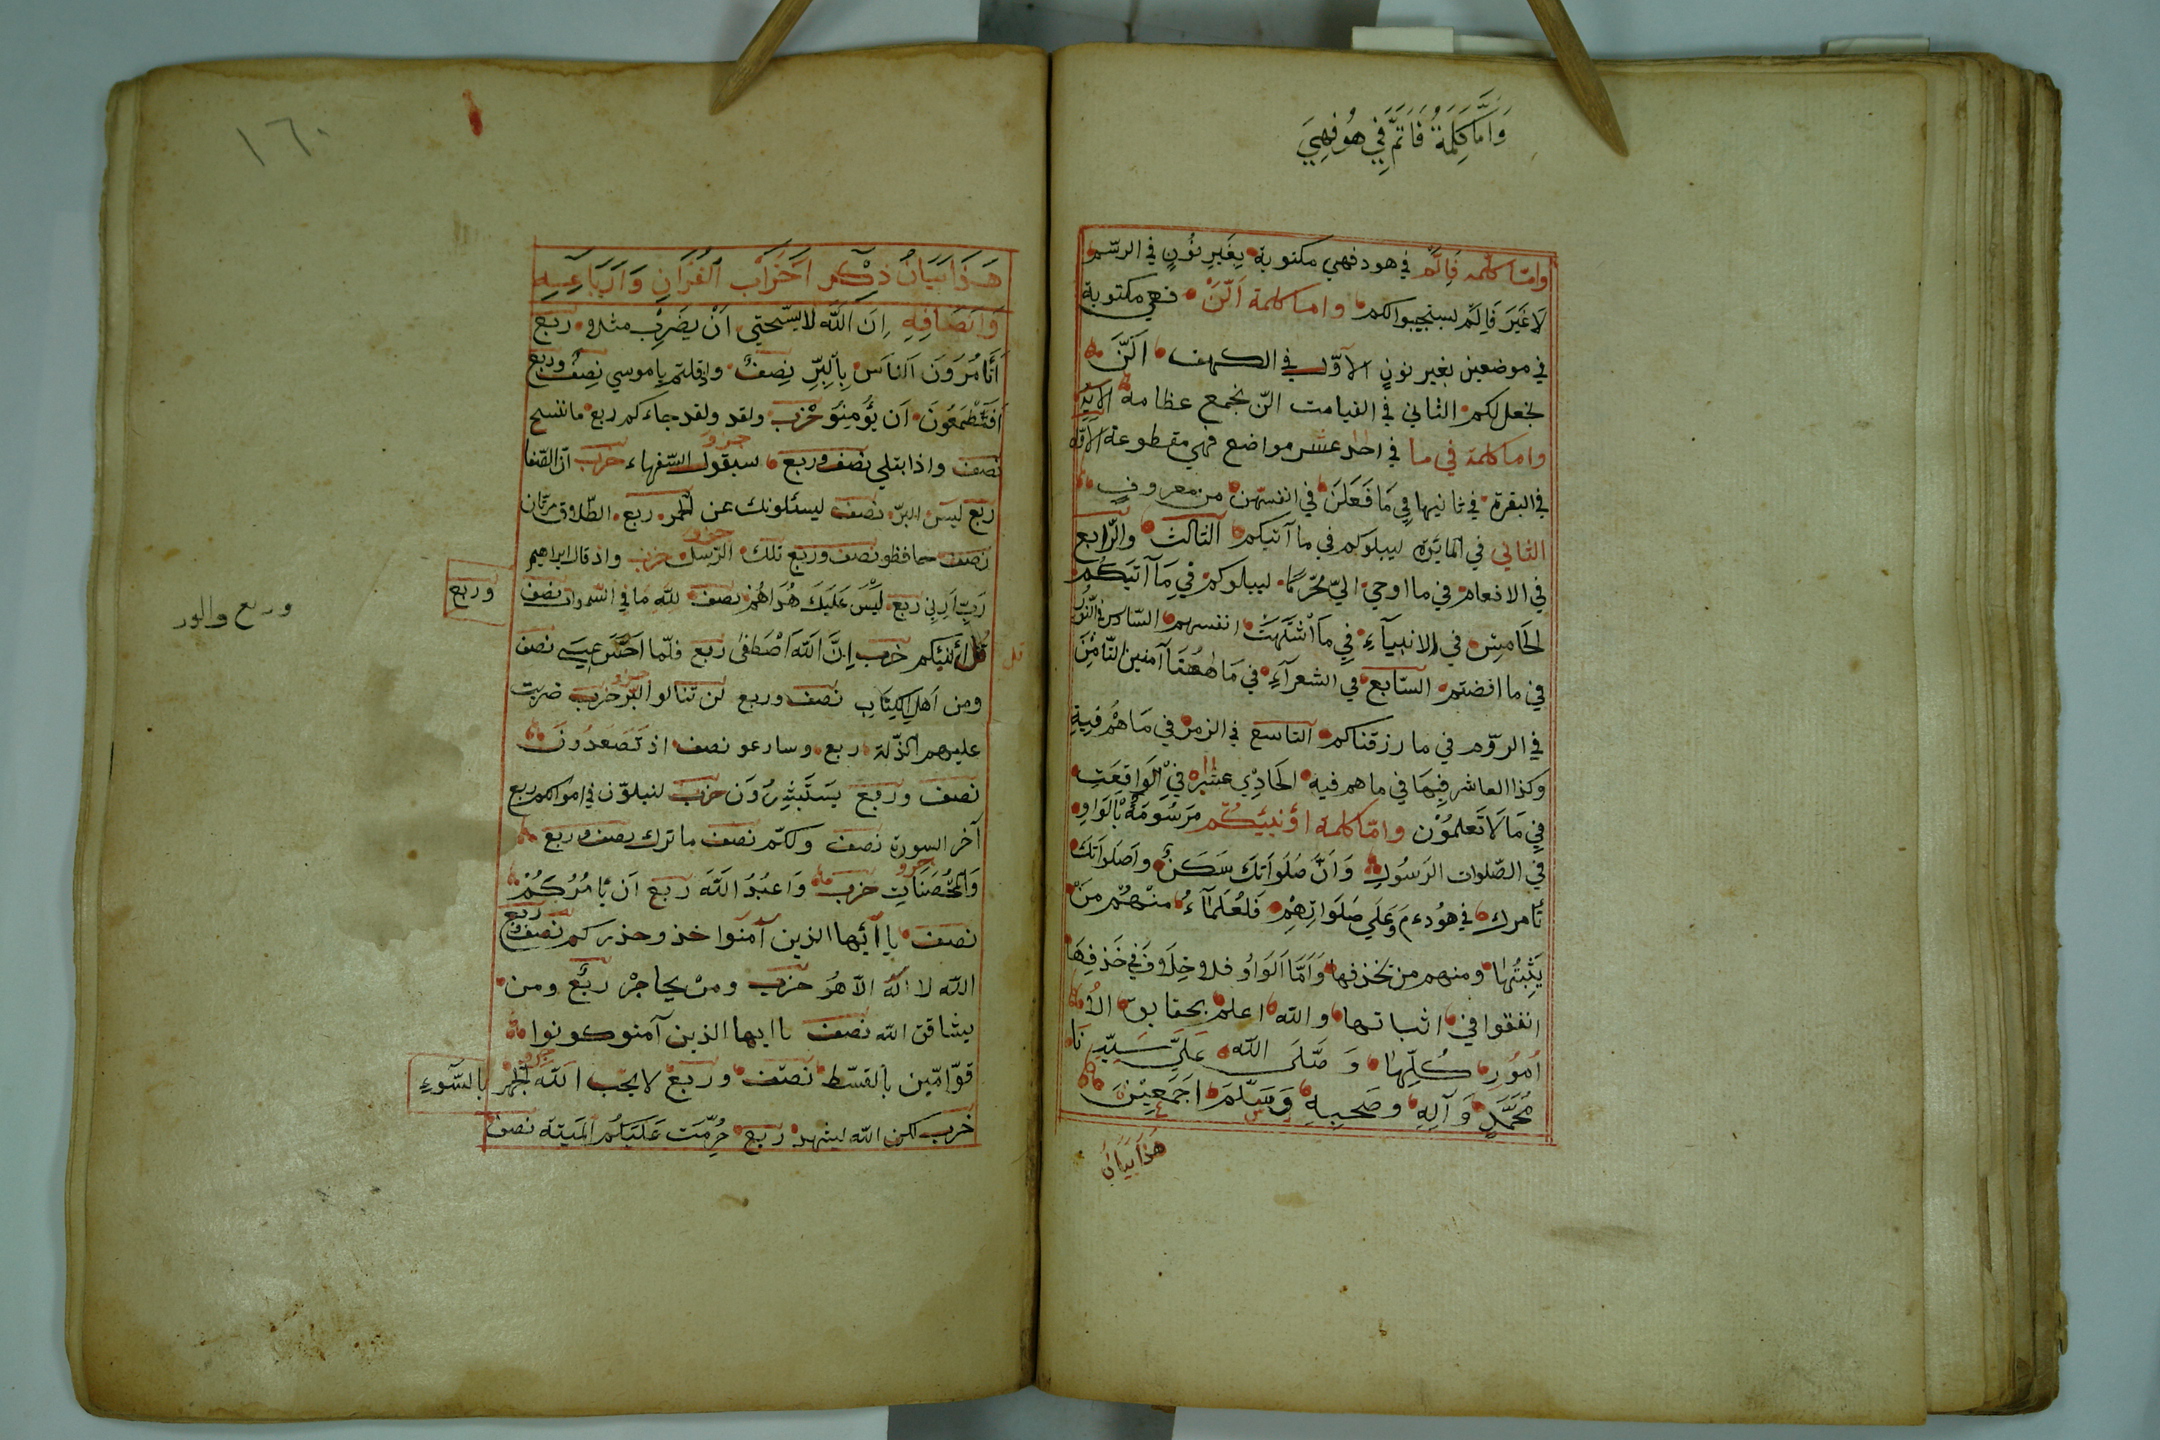 وَاَمَّا كَلِمَةُ فَاَتَمَّ فِي هُو فَهِيَ
وامّا كلمه فَاِلَّم في هود فهي مكتوبة بِغَيرِ نُونٍ في الرسّم
لَاغَيَرَ فَاِلَّم يستجيبوا لكم واما كلمة اَلَّنْ فهي مكتوبة
في موضعين بغير نونٍ الاَوّل في الكهف اَلَنَّ
نجعل لكم الثاني في القيامت الّن نجمع عظامه الاية
واما كلمة في ما في احد عشر مواضع فهي مقطوعة الاوّل
في البقرة في ثانيها فِي مَا فَعَلنَ في انفسهن من معروفٍ
الثاني في المائدة ليبلوكم في ما آتيكم الثالث والرّابع
في الانعام في ما اوحي اليّ محرّمًا ليبلوكم فِي مَا آتَيكُم
الخامِسُ في الانبيآءِ فِي مَا اشتَهَتْ انفسهم السّادس في النّور
في ما افضتم السّابع في الشعرآءِ في مَا هٰهُنَا آمنين الثّامِنَ
في الروّم في ما رزقناكم التاسع في الزمر في مَا هُمْ فِيهِ
وكذا العاشر فِيهَا في ما هم فيه الحَادِي عشر في الوَاقِعَت
فِي مَا لَا تَعلَمُوْن وامّا كلمة اَؤُنَبِّئكُم مَرسُومَةٌ بِالوَاوِ
في الصّلوات الرّسُولِ وَاَنَّ صَلَوَاتَكَ سَكَنٌ واَصَلَوَاتُكَ
تَامرك في هُود وَعَلَي صَلَوَاتِهِم فَلعُلَمَآءُ مِنْهُم مَنْ
يَثبِتُهَا ومنهم من يحذفها وَاَمَّا اَلوَاوُ فلا خِلَافَ في حَذفِهَا
انفقوا في اثباتها والله اعلم بحقايق الاُ
اُمُورِ كُلِّهَا وَ صَلّيَ اللّه عَلَيَ سَيِّدِنَا
مُحَمَّدٍ وَآلِهِ وصَحبِهِ وَسَلَّمَ اَجمَعِيْنَ
هٰذَا بَيَانُ
١٦٠
هَذَا بَيَانُ ذِكْرِ اَحْزَابِ القُرْآنِ وَاَرْبَاعِهِ
وَاَنصَافِهِ اِنَّ اَللَّه لَا يَستَحيي اَنْ يَضرِبَ مثلا ربع
اَتَامُرُونَ اَلنَاسَ بِاَلبِرِّ نِصفٌ واذ قلتم ياموسي نِصفٌ وربع
اَفَتَطمَعُونَ اَن يُؤمِنُو حزب ولقد ولقد جاءكم ربع ما ننسخ
نصف واذابتلي نصف وربع سيقول السّفهاء حزب انّ الصّفا
ربع ليس البرّ نصف يسئلونك عن الخمر ربع الطّلاق مرتان
نصف حافظو نصف وربع تلك الرّسل حزب واذقال ابراهيم
رَبِّ اَرِنِي ربع لَيْسَ عَلَيكَ هُدَاهُم نصف لله ما في السّموات نصف
وربع
وربع والور
قُل اَؤُنبِّئكم حزب اِنَّ اَللّهَ اصْطَفٰى ربع فلمّا اَحَسَّ عِيسَي نصف
قل
ومن اَهلِ الكِتَابِ نصف وربع لن تنالوا البرّ حزب ضربت
عليهم الذّلة ربع وسارعو نصف اذ تَصعَدُونَ
نصف وربع يَستَبشِرُونَ حزب لتبلوّن في اموالكم ربع
آخر السورة نصف ولكم نصف ماترك نصف وربع
وَالمُحصَنَاتِ حزب وَاعبُدُ اللّهَ ربع اَن يَامُرُكُمْ
نصف يا اَيّها الذين آمَنوا خذوحذركم نصف وربع
اللّه لا اله الاّ هُوَ حزب ومن يهاجرْ ربعٌ ومن
يشاقق اللّه نصف ياايها الذين آمنو كونوا
قوّامّين بالقسط نصف وربع لا يحّب اللّه الجهر بالسّوءِ
حزب لكن اللّه ليشهد ربع حُرِّمَت عَلَيكُم المَيتَة نصف